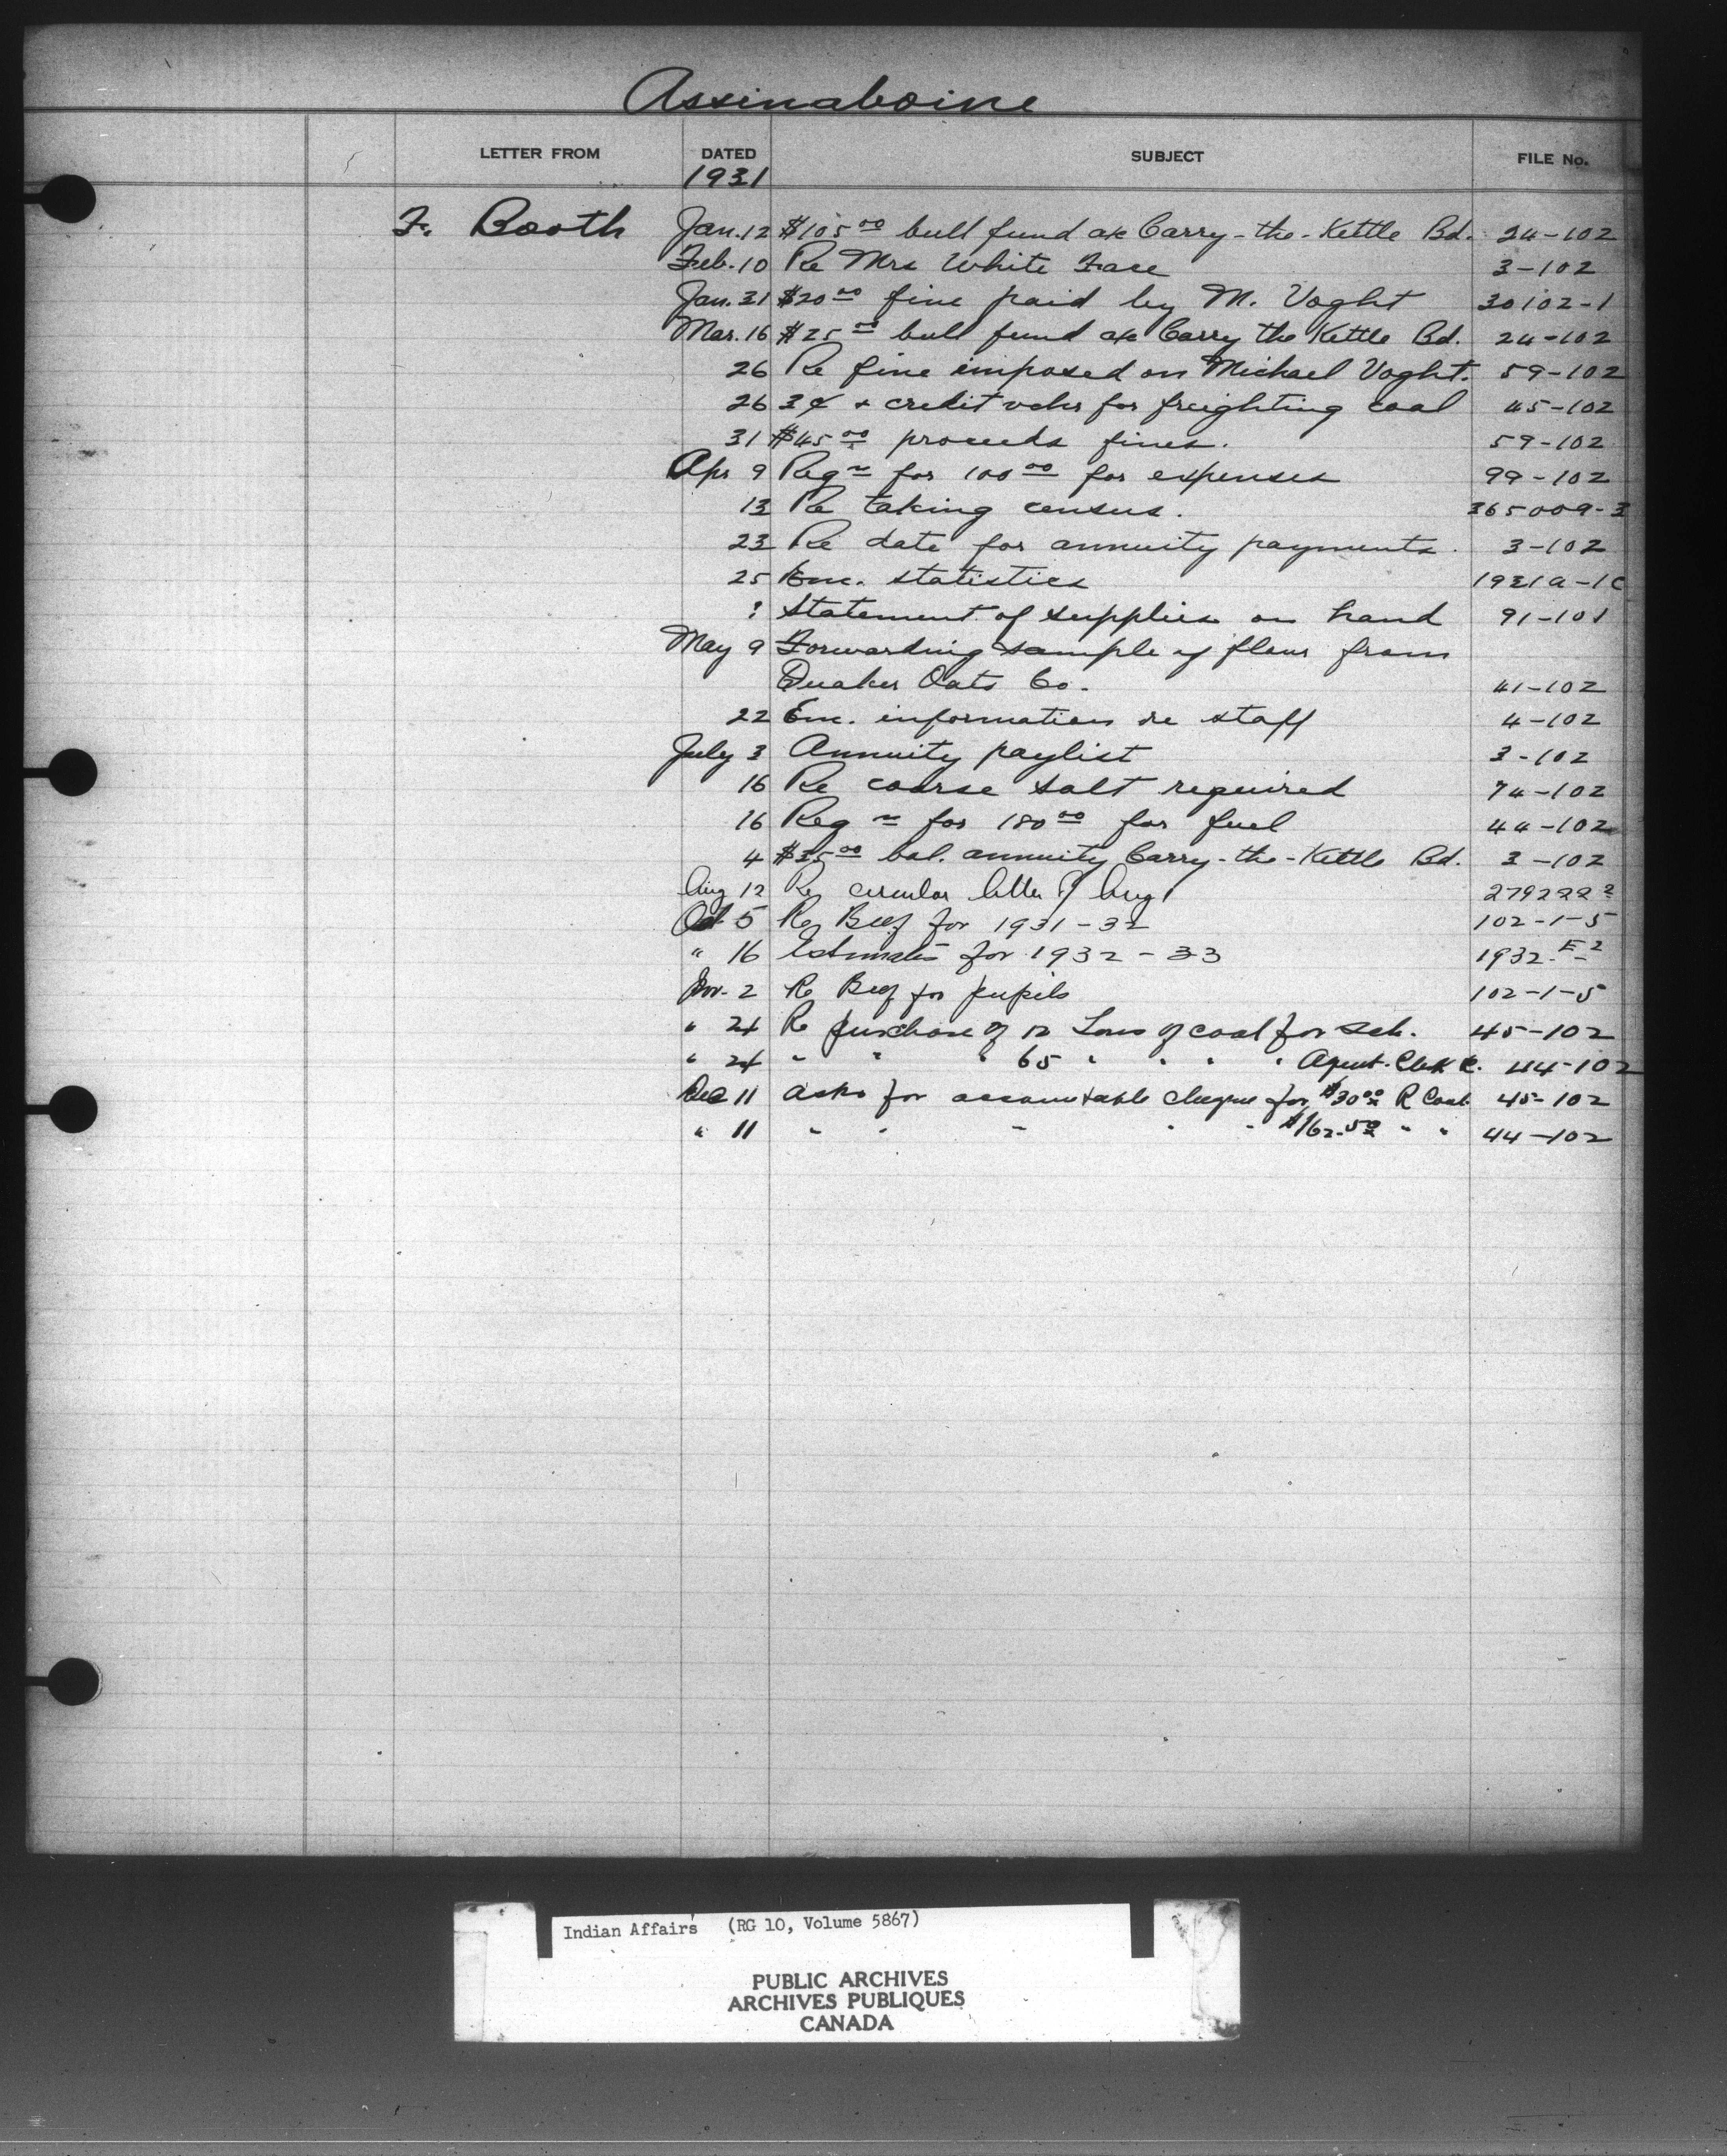 Assinaboine
LETTER FROM DATED SUBJECT FILE No.
1931
F. Booth Jan. 12 $105 00 bull fund a/c Carry-the-Kettle Bd. 24-102
Feb. 10 Re Mrs White Face 3-102
Jan. 31 $20 00 fine paid by M. Voght 30102-1
Mar. 16 $25 00 bull fund a/c Carry the Kettle Bd. 24-102
26 Re fine imposed on Michael Voght. 59-102
26 3¢ + credit vchr for freighting coal 45-102
31 $45 00 proceeds fines. 59-102
Apr 9 Reqn for 100 00 for expenses 99-102
13 Re taking census. 365009-3
23 Re date for annuity payments. 3-102
25 Enc. statistics 1931a-1C
? Statement of supplies on hand 91-101
May 9 Forwarding sample of flour from
Quaker Oats Co. 41-102
22 Enc. information re staff 4-102
July 3 Annuity paylist 3-102
16 Re coarse salt required 74-102
16 Req n for 180 00 for fuel 44-102
4 $35 00 bal. annuity Carry-the-Kettle Bd. 3-102
Aug 12 Re circular letter Aug 279222 2
Oct 5 Re Beef for 1931-32 102-1-5
" 16 Estimates for 1932-33 1932 E 2
Nov. 2 Re Beef for pupils 102-1-5
" 24 Re purchase of 12 Tons of coal for Sch. 45-102
" 24 " " " 65 " " " " Agent. Clerk 44-102
Dec 11 asks for accountable cheque for $30 00 R Coal 45-102
" 11 " " " " " $162.50 " " 44-102
Indian Affairs (RG 10, Volume 5867)
PUBLIC ARCHIVES
ARCHIVES PUBLIQUES
CANADA